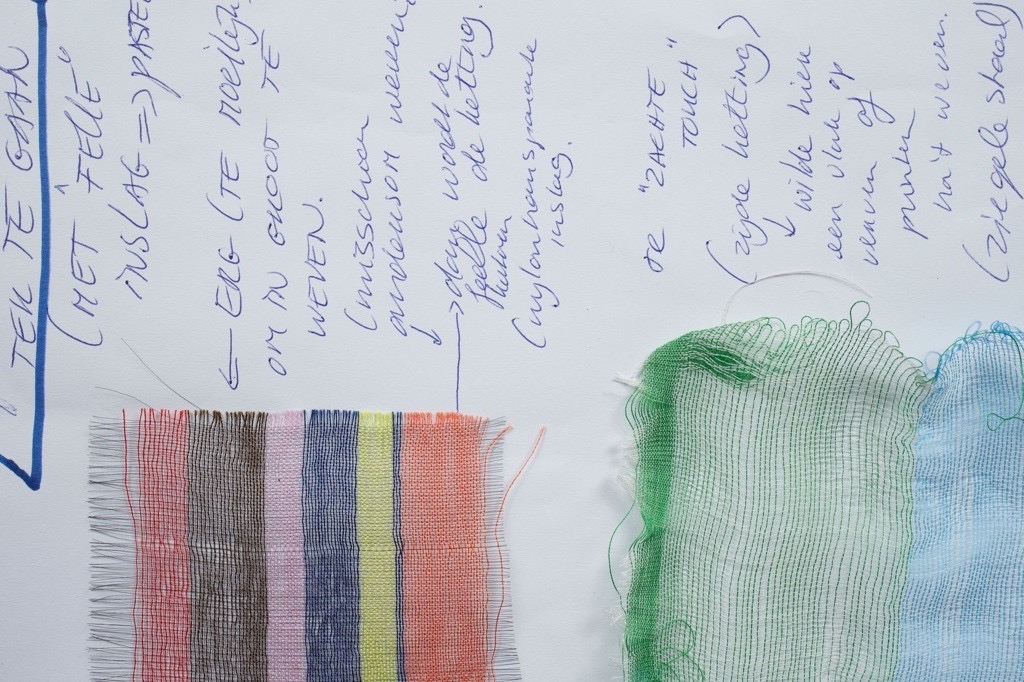 TEK TE GAAN
(MET FELLE"
INSLAG => PASTE
← ERG (TE MOEILIJK
OM IN GROOT TE
WEVEN.
(misschien
andersom weven:
↓
→ dan wordt de
felle de ketting.
(nylontransparante
inslag.
DE "ZACHTE
TOUCH"
(zijde ketting)
↓ wilde hier
een vlak op
weven of
punten
na it weven.
(zie gele staal)